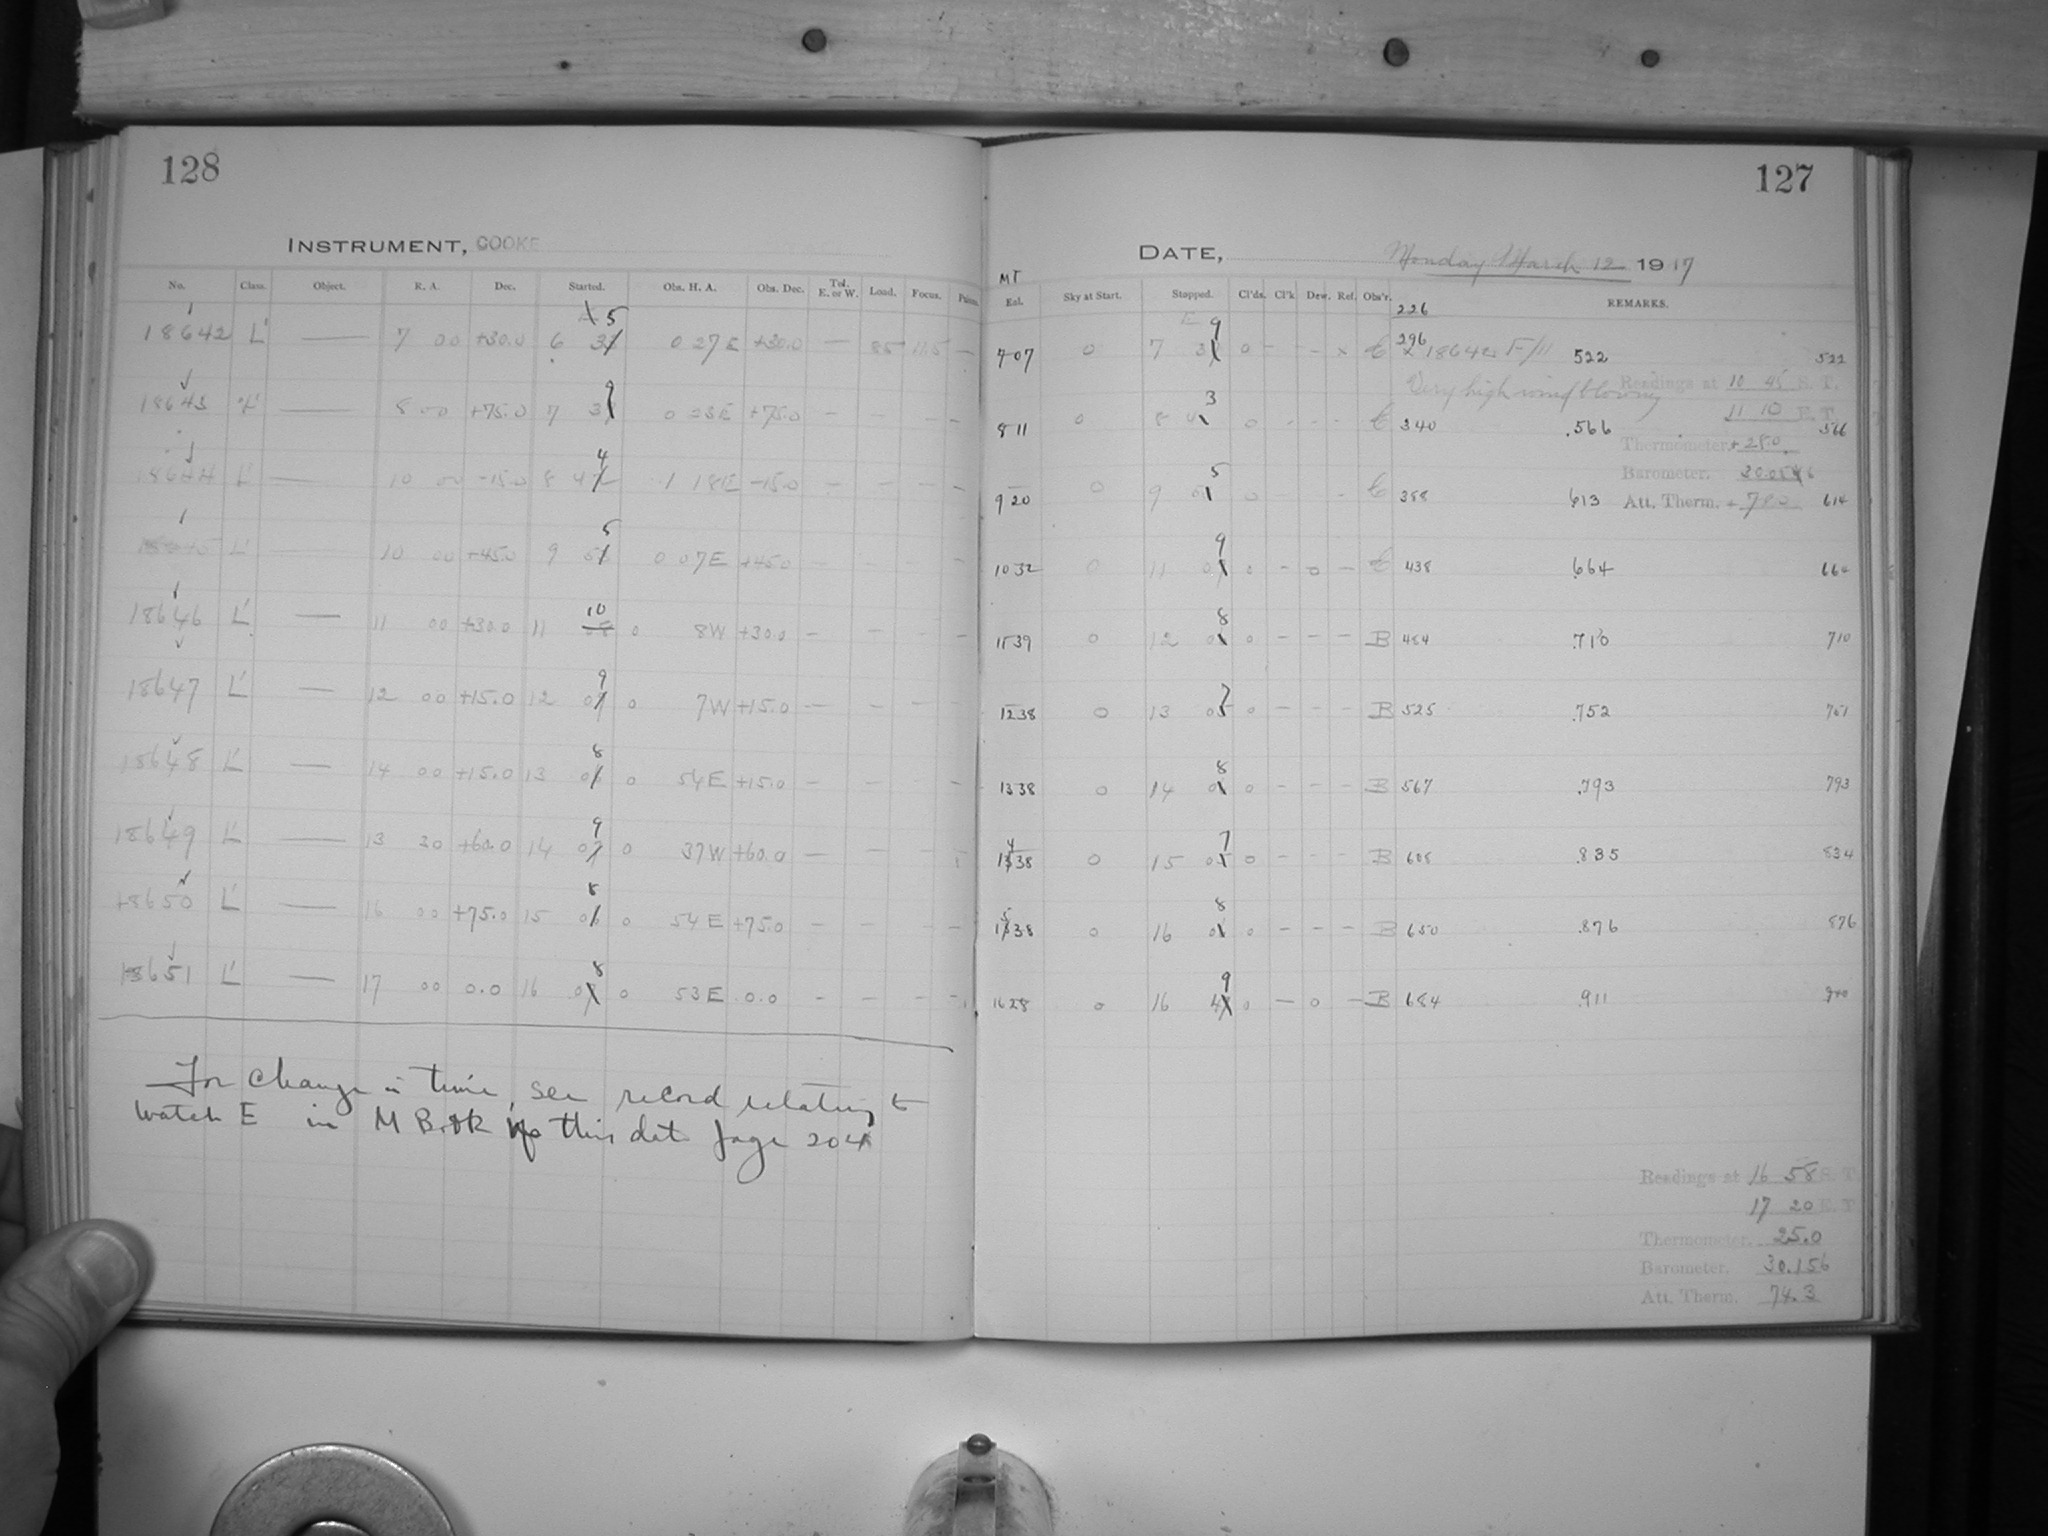 128
127
INSTRUMENT, COOKE
DATE, Monday March 12 1917
No. Class. Object. R. A. Dec. Started. Obs. H. A. Obs. Dec. Tel. E. or W. Load. Focus.
MT
Eql. Sky at Start. Stopped. Cl'ds. Cl'k Dew. Ref. Obs'r. REMARKS.
226
5
9
296
18642 L' — 7 00 +30.0 6 0 27E +30.0 — 85 11.5 —
707 0 7 0 - - x C x 18642 F/11 522 522
Very high wind blowing
Readings at 10 45 S. T.
11 10 E. T.
9
3
18643 — 8 00 +75.0 7 0 23E +75.0 - - - -
811 0 8 0 - - - C 340 .566 566
Thermometer + 28.0
Barometer.
4
5
18644 L' — 10 00 -15.0 8 1 18E -15.0 - - - -
920 0 9 0 - C 388 613 614
Att. Therm.
5
9
L' 10 00 +45.0 9 0 07E +45.0 - - - -
1032 0 11 0 - 0 - C 438 .664
10
8
18646 L' — 11 00 +30.0 11 0 8W +30.0 - - - -
1139 0 12 0 - - - B 484 .710 710
9
7
18647 L' — 12 00 +15.0 12 0 7W +15.0 - - - -
1238 0 13 0 - - - B 525 .752 751
8
8
18648 L' — 14 00 +15.0 13 0 54E +15.0 - - - -
1338 0 14 0 - - - B 567 .793 793
9
4
7
18649 L' — 13 30 +60.0 14 0 37W +60.0 - - -
1338 0 15 0 - - - B 608 .835 834
8
5
8
18650 L' — 16 00 +75.0 15 0 54E +75.0 - - - -
1538 0 16 0 - - - B 650 .876 876
8
9
18651 L' — 17 00 0.0 16 0 53E 0.0 - - - -
1628 0 16 0 - 0 - B 684 .911
For change in time, see record relating to
watch E in M Book of this date page 204
Readings at 16 58 S. T
17 20 E. T
Thermometer. 25.0
Barometer. 30.156
Att. Therm. 74.3